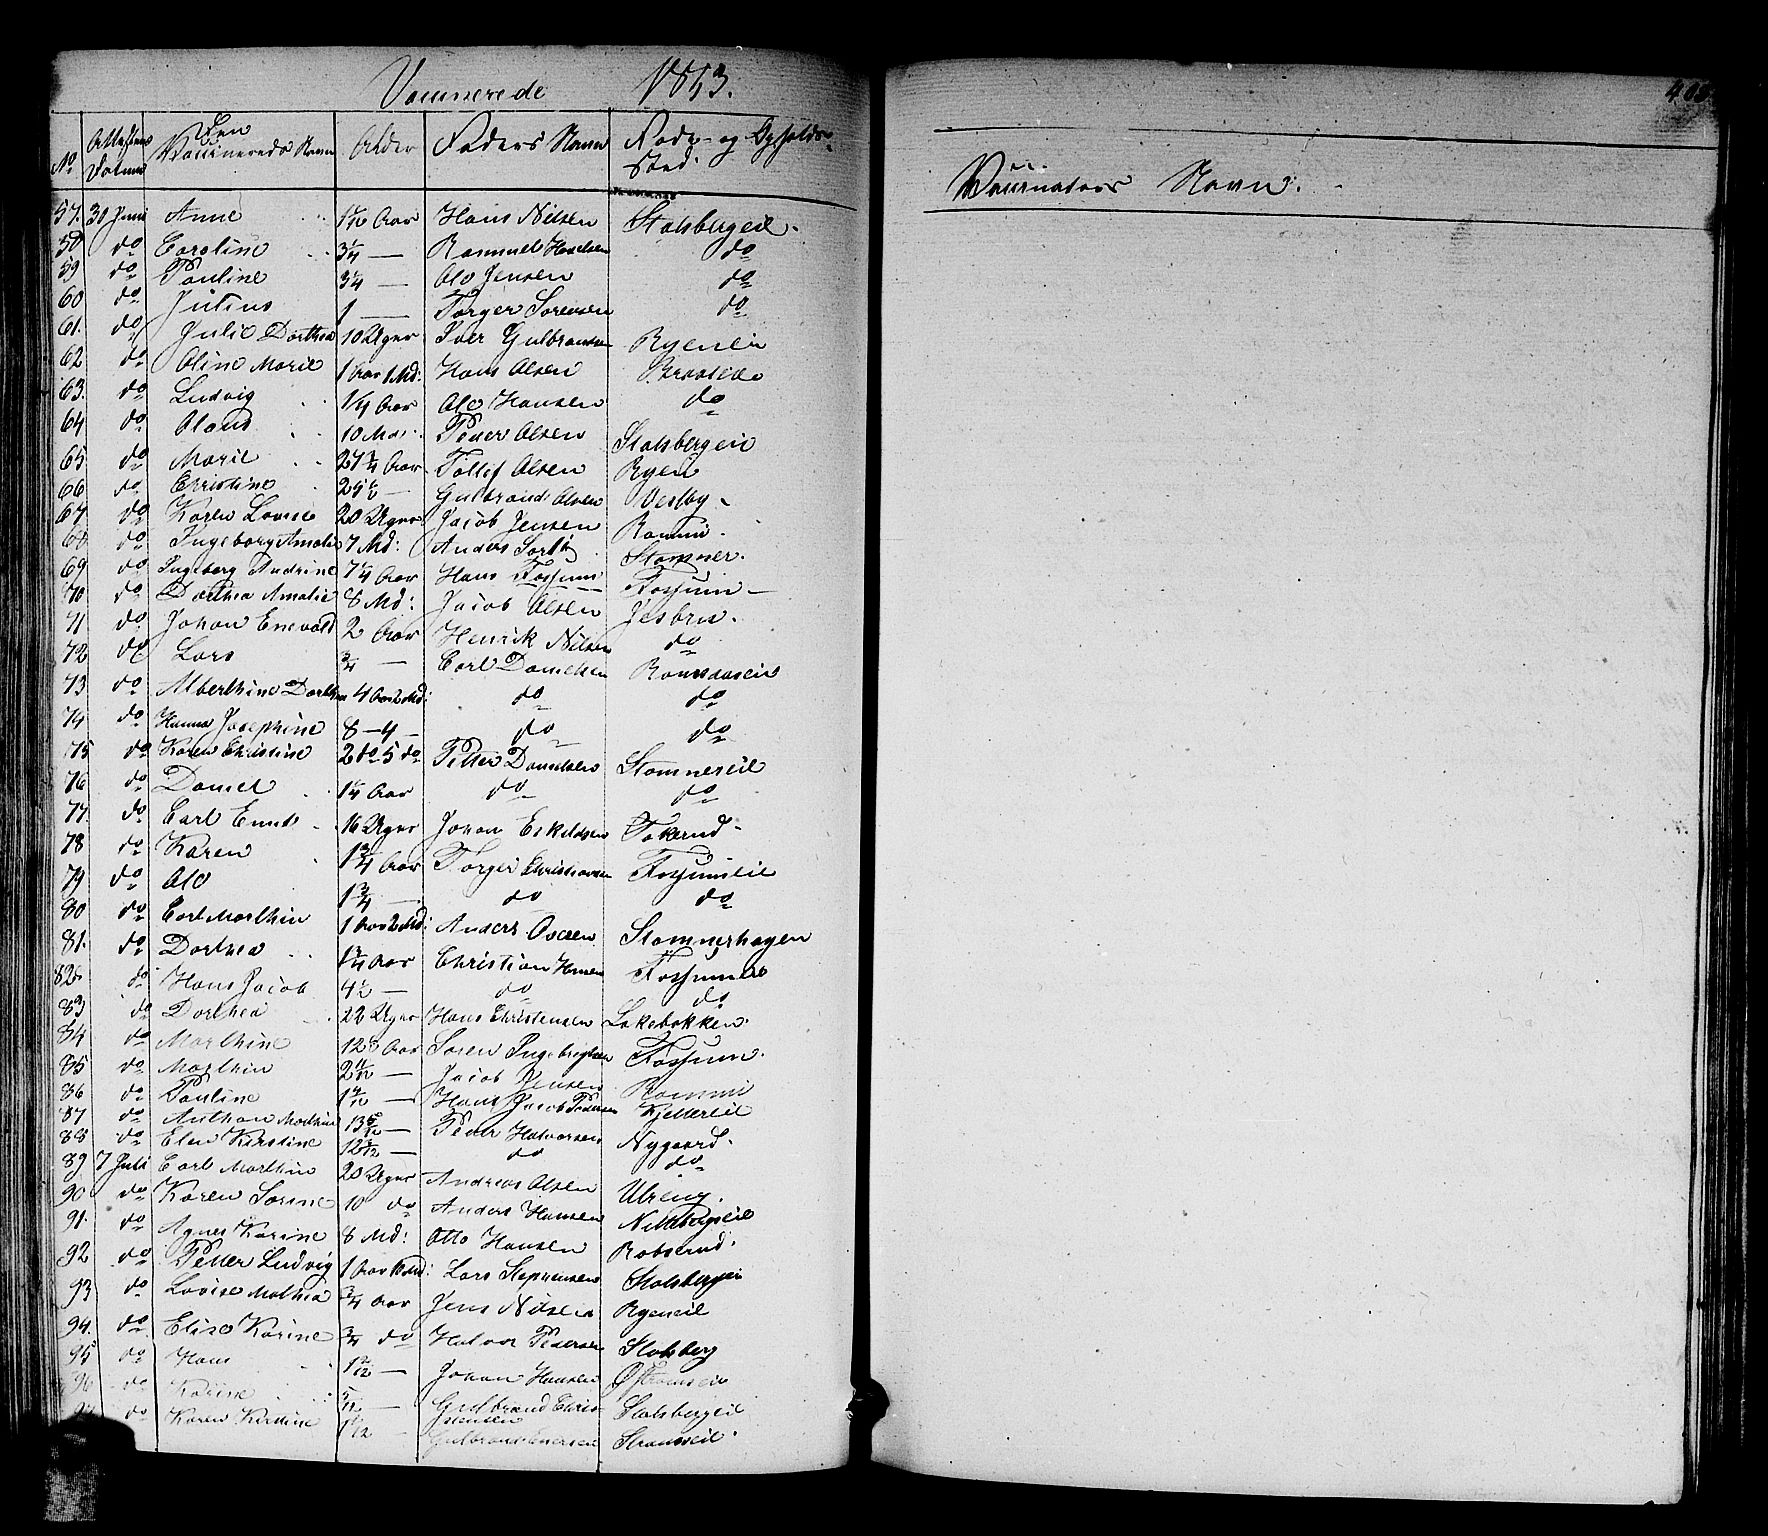 Vaccinerede 1853.
No Attestens Datum Den Vaccineredes Navn Alder Faders Navn Føde- og Opholds-Sted.
57. 30 Juni Anne Aar Hans Nilsen Stalsbergeie.
58 do Caroline 3/4 —  do
59 do Pauline 3/4 — Ole Jensen do
60 do Julius 1 — Torger Sørensen do
61. do Julie Dorthea 10 Uger Iver Gulbrandsen Ryeneie
62 do Oline Marie 1 Aar 1 Md: Hans Olsen
63. do Ludvig 1 1/4 Aar Ole Hansen do
64 do 10 Mdr. Peder Olsen Stalsbergeie
65 do Marie 2 3/4 Aar Tollef Olsen Ryen
66 do Christine — Gulbrand Olsen Vestby
67 do Karen Lovise 20 Uger Jacob Jensen
68 do Ingeborg Amalie 7 Md: Anders Stomner.
69 do Ingeborg Andrine 7 1/4 Aar Hans Fossum Fossum —
70 do Dorthea Amalie 8 Md: Jacob Olsen
71 do Johan Enevald 2 Aar Henrik Nilsen do
72 do Lars 3/4 — Carl Danielsen
73 do Alberthine Dorthea 4 Aar 2 Md: do do
74 do Hanna Josephine 8 — 4 — do do
75 do Karen Christine 2 do 5 do Petter Danielsen Stomnereie
76 do Daniel Aar do do
77. do Carl 16 Uger Johan Eskildsen
78 do Karen 1 3/4 Aar Torger Christiansen Fossumeie
79 do Ole 1 3/4 — do do
80 do Carl Marthin 1 Aar 2 Md: Anders Stomnerhagen
81. do Dorthea 1 3/4 Aar Christian Fossumeie
82. do Hans Jacob 4 1/2 — do do
83 do Dorthea 22 Uger Hans Christensen Lakebakken.
84 do Marthine Aar Søren Ingebrigtsen Fossum.
85 do Marthin — Jacob Jensen
86 do Pauline — Hans Jacob Pedersen Kjellereie
87 do Anthon Marthin — Peder Halvorsen Nygaard.
88 do Elen Kirstine — do do
89. 7 Juli Carl Marthin 20 Uger Andreas Olsen Ulreng.
90 do Karen Sorine 10 do Anders Hansen Nitteb
91. do Agnes Karine 8 Md: Otto Hansen Robsrud.
92 do Petter Ludvig 1 Aar Lars Stephensen Stalsbergeie
93 do Lovise Mathea 3/4 Aar Jens Nilsen Ryeneie
94. do Elise Karine 3/4 do Halvor Pedersen Stalsberg
95 do Hans — Johan Hansen
96 do Karine — Gulbrand Christensen Stalsbergeie
97 do Karen Kirstine — Gulbrand Strømseie.
Vaccinateurs Navn.